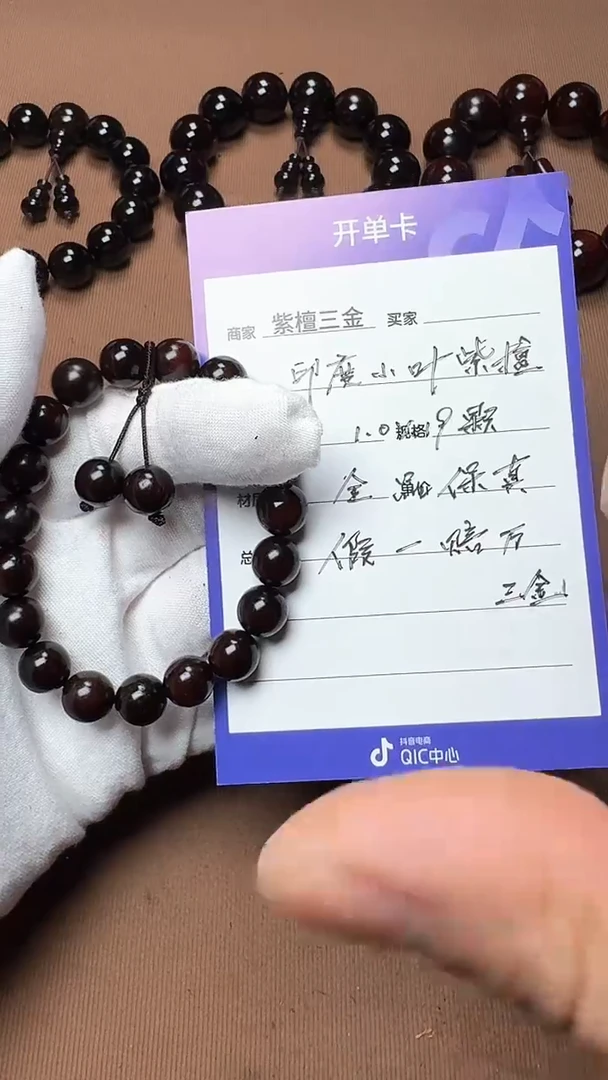 开单卡
商家 紫檀三金 买家
印度小叶紫檀
1.0 规格 9颗
材 金 保真
总 假一赔万
三金
抖音电商
QIC中心